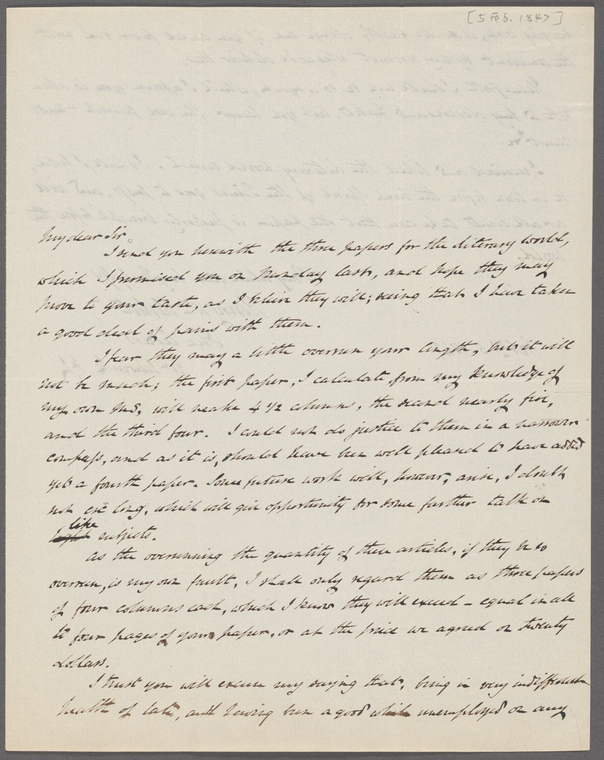 [5 Feb. 1847]
My dear Sir,
I send you herewith the three papers for the Literary World,
which I promised you on Monday last, and hope they may
prove to your taste, as I think they will; seeing that I have taken
a good deal of pains with them.
I fear they may a little overrun your length, but it will
not be much; the first paper, I calculate, from my knowledge of
my own MS, will make 4 1/2 columns, the second nearly five,
and the third four. I could not do justice to them in a narrower
compass, and as it is, should have been well pleased to have added
yet a fourth paper. Some future work will, however, arise, I doubt
not ere long, which will give opportunity for some further talk on
like
subjects.
As the overrunning the quantity of these articles, if they be so
overrun, is my own fault, I shall only regard them as three papers
of four columns each, which I know they will exceed – equal in all
to four pages of your paper, or at the price we agreed on twenty
dollars.
I trust you will excuse my saying that, being in very indifferent
health of late, and having been a good while unemployed on any